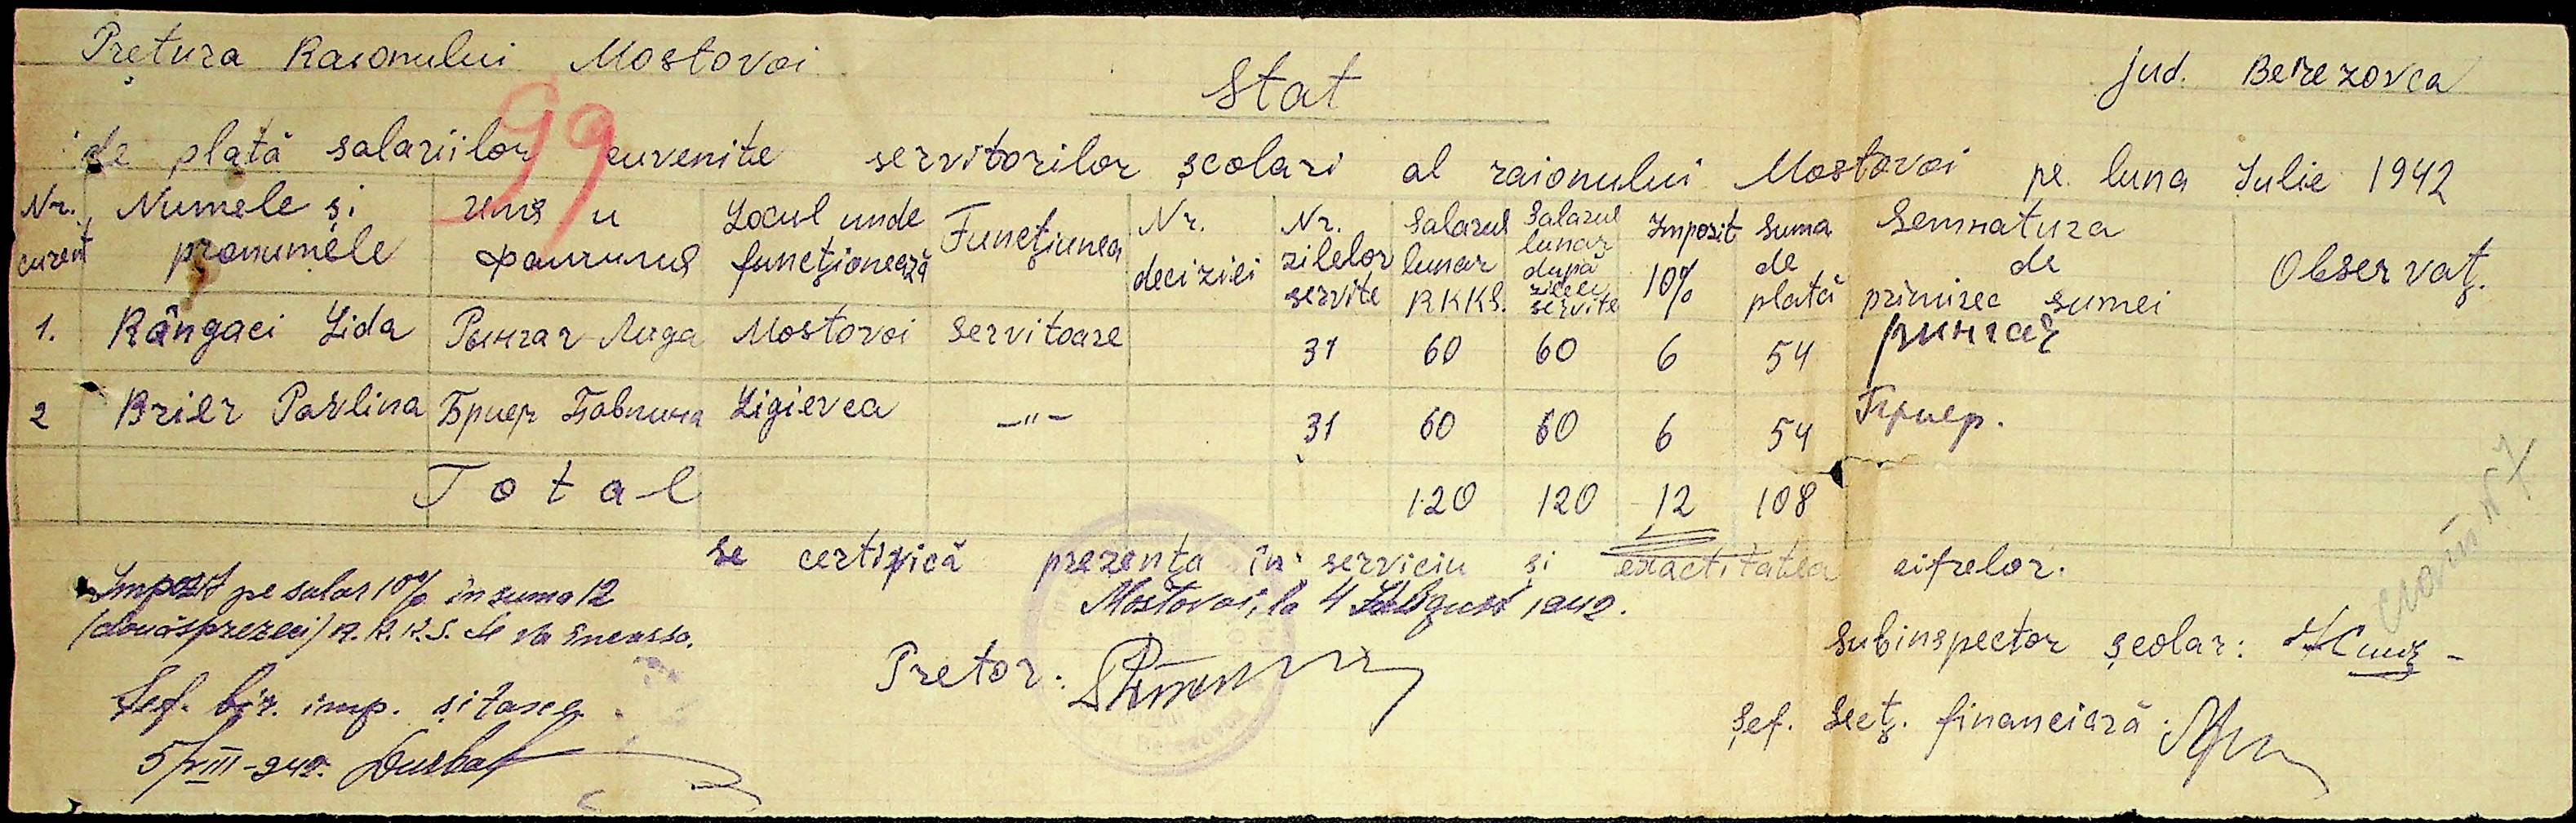 Pretura Raionului Mostovoi
jud. Berezovca
Stat
99
de plată salariilor cuvenite servitorilor școlari al raionului Mostovoi pe luna Iulie 1942
Nr. curent | Numele și pronumele | имя и фамилия | Locul unde funcționează | Funcțiunea | Nr. deciziei | Nr. zilelor servite | Salarul lunar RKKS. | Salarul lunar după zilele servite | Impozit 10% | Suma de plată | Semnatura de primirea sumei | Observaț.
1. | Rângaci Lida | Рынгач Лида | Mostovoi | Servitoare | 31 | 60 | 60 | 6 | 54 | Рингач
2 | Brier Pavlina | Бриер Бавлина | Ligievca | -"- | 31 | 60 | 60 | 6 | 54 | Бриер.
Total | 120 | 120 | 12 | 108
se certifică prezența în serviciu și exactitatea cifrelor.
Mostovoi, la 4 August 1942.
Impozit pe salar 10% in suma 12
(douăsprezeci) R.K.K.S. se va incassa.
Șef. bir. imp. și taxe
5/VIII-942.
Pretor:
Subinspector școlar:
Șef. Secț. financiară: